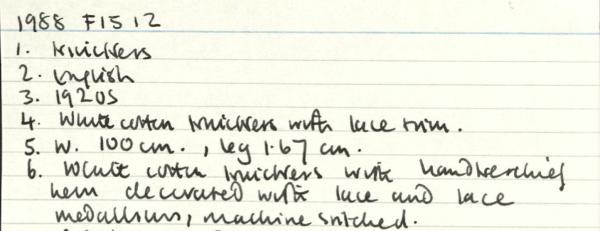 1988 F15 12
1. Knickers
2. English
3. 1920s
4. White cotton knickers with lace trim.
5. W. 100 cm., leg 1.67 cm.
6. White cotton knickers with handkerchief
hem decorated with lace and lace
medallions, machine stitched.